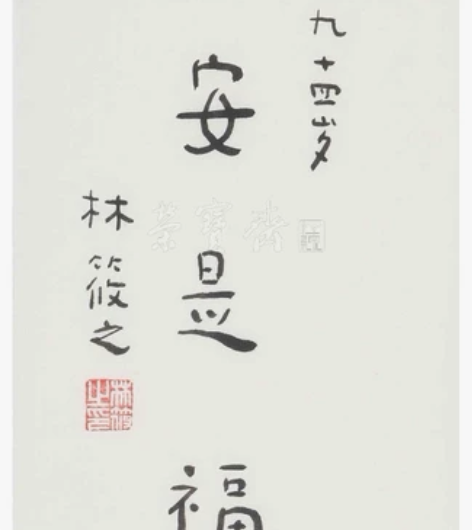 九十四岁
安是福
林筱之
林筱之印
榮寶齋